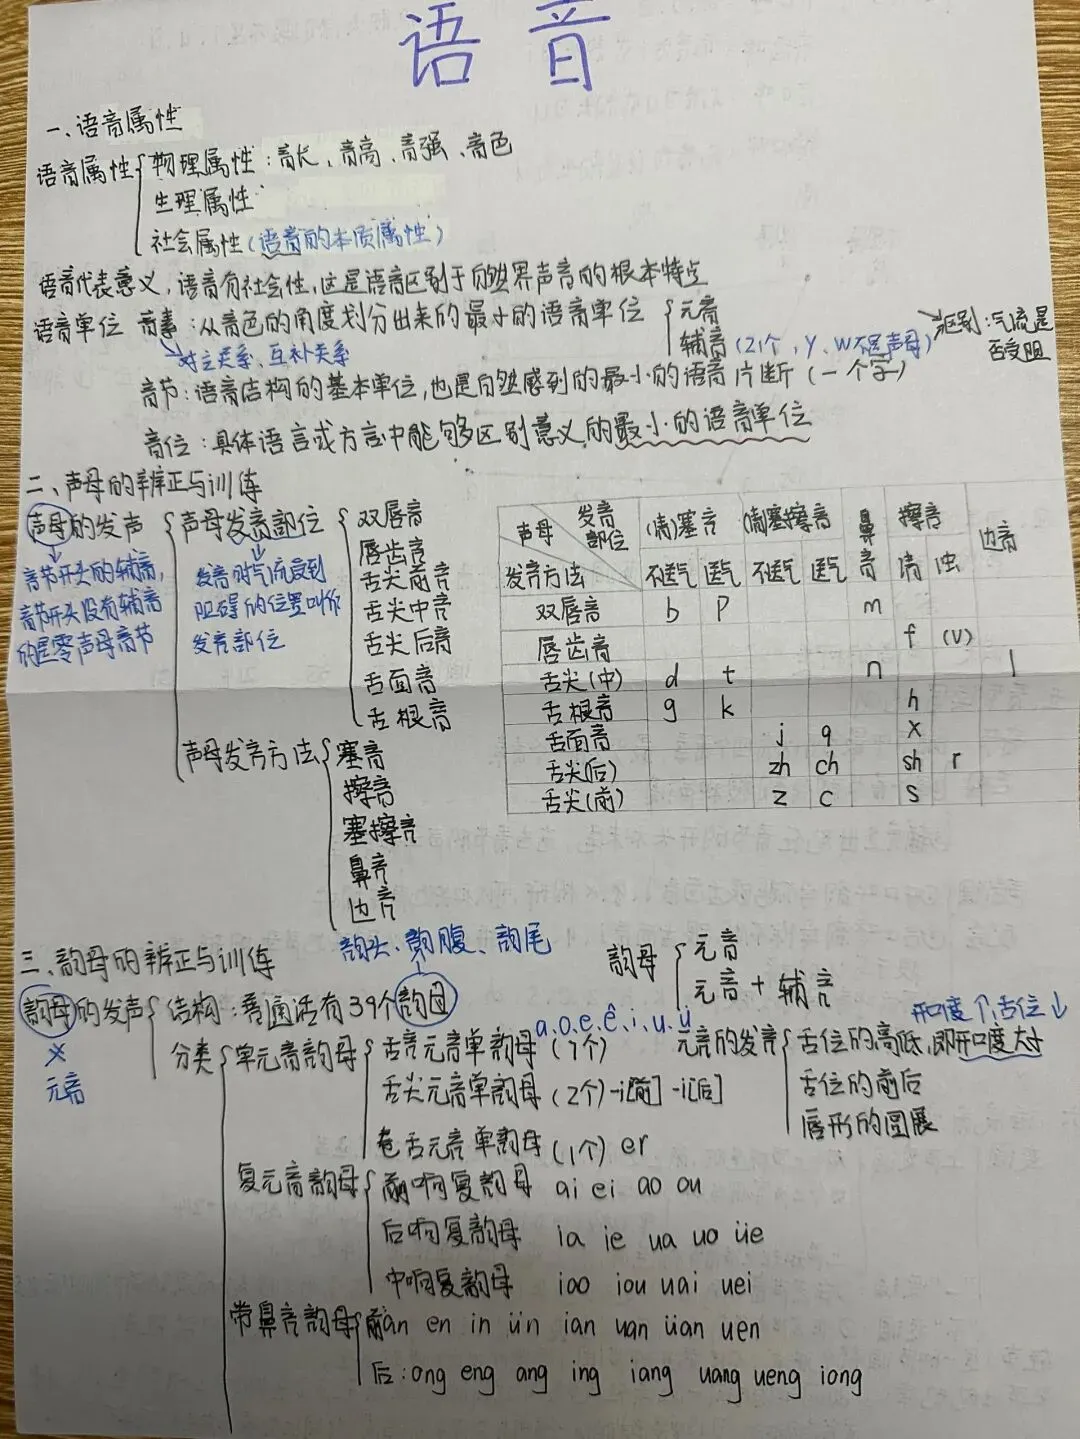 语音
一、语音属性
语音属性 物理属性：音长、音高、音强、音色
生理属性
社会属性（语音的本质属性）
语音代表意义，语音有社会性，这是语音区别于自然界声音的根本特点
语音单位 音素：从音色的角度划分出来的最小的语音单位 元音
辅音（21个，y、w不是声母） 区别：气流是否受阻
对立关系、互补关系
音节：语音结构的基本单位，也是自然感到的最小的语音片断（一个字）
音位：具体语言或方言中能够区别意义的最小的语音单位
二、声母的辨正与训练
声母的发声 声母发音部位 双唇音
唇齿音
舌尖前音
舌尖中音
舌尖后音
舌面音
舌根音
音节开头的辅音，
音节开头没有辅音
的是零声母音节
发音时气流受到
阻碍的位置叫做
发音部位
声母发音方法 塞音
擦音
塞擦音
鼻音
边音
声母 发音部位 (清)塞音 (清)塞擦音 鼻音 擦音 边音
发音方法 不送气 送气 不送气 送气 清 浊
双唇音 b p m
唇齿音 f (v)
舌尖(中) d t n l
舌根音 g k h
舌面音 j q x
舌尖(后) zh ch sh r
舌尖(前) z c s
三、韵母的辨正与训练
韵头、韵腹、韵尾
韵母 元音
元音+辅音
韵母的发声 结构：普通话有39个韵母
元音
分类 单元音韵母 舌言元音单韵母（7个） a.o.e.ê.i.u.ü
舌尖元音单韵母（2个）-i[前] -i[后]
卷舌元音单韵母（1个）er
元音的发音 舌位的高低，即开口度大小
开口度↑舌位↓
舌位的前后
唇形的圆展
复元音韵母 前响复韵母 ai ei ao ou
后响复韵母 ia ie ua uo üe
中响复韵母 iao iou uai uei
带鼻音韵母 前an en in ün ian uan üan uen
后：ong eng ang ing iang uang ueng iong